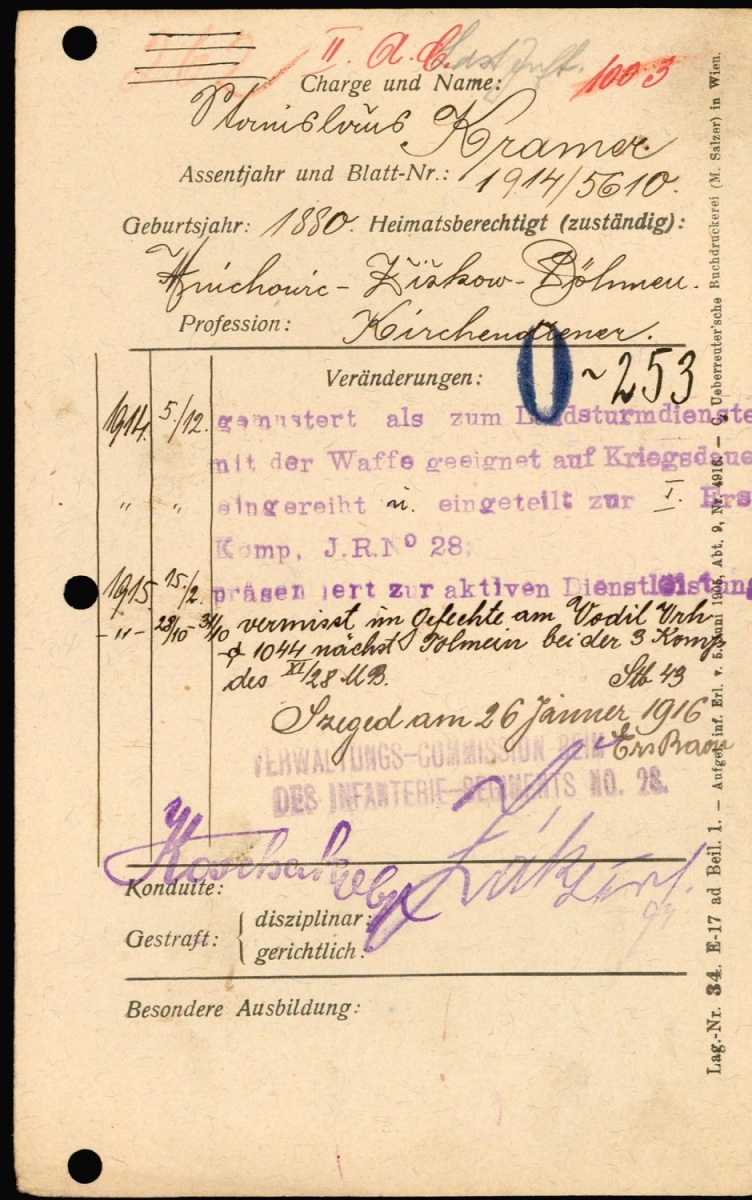 II. A. C.
1003
Charge und Name:
Stanislaus Kramer
Assentjahr und Blatt-Nr.: 1914/5610.
Geburtsjahr: 1880. Heimatsberechtigt (zuständig):
Mnichowic - Žižkow - Böhmen.
Profession: Kirchendiener.
Veränderungen: 0 - 253
1914. 5/12. gemustert als zum Landsturmdienste
mit der Waffe geeignet auf Kriegsdaue
" " eingereiht u. eingeteilt zur I. Ers
Komp, J.R.No 28.
1915. 15/2. präsentiert zur aktiven Dienstleistung
-"- 28/10-31/10 vermisst im Gefechte am Vodil Vrh
1044 nächst Tolmein bei der 3 Komp
des XI/28 MB. Stb 43
Szeged am 26 Jänner 1916
VERWALTUNGS-COMMISSION BEIM ErsBaon
DES INFANTERIE-REGIMENTS NO. 28.
Konduite:
Gestraft: { disziplinar:
gerichtlich:
Besondere Ausbildung:
Lag.-Nr. 34. E-17 ad Beil. 1. — Aufgel. inf. Erl. v. 5. Juni 1904, Abt. 9, Nr. 4916. — C. Ueberreuter'sche Buchdruckerei (M. Salzer) in Wien.